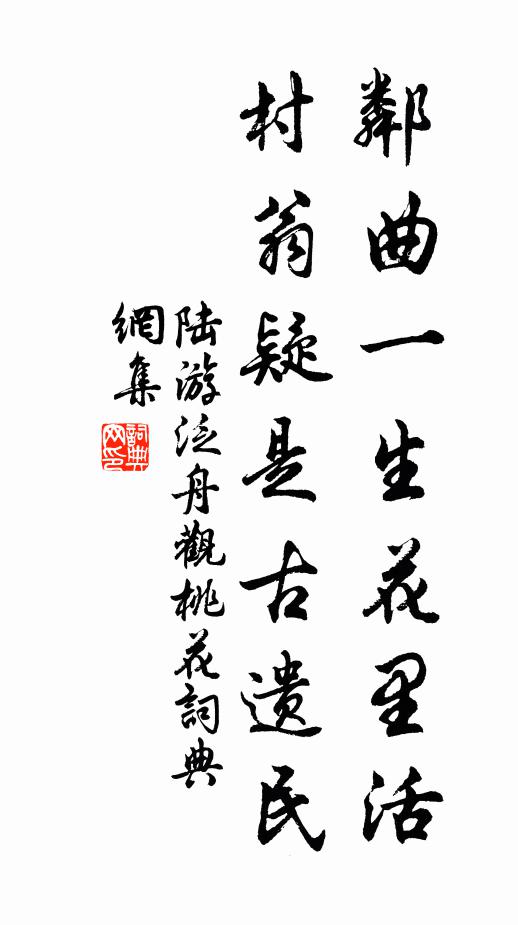 鄰曲一生花里活
村翁疑是古遺民
陆游泛舟觀桃花詞典
網集
詞典網印